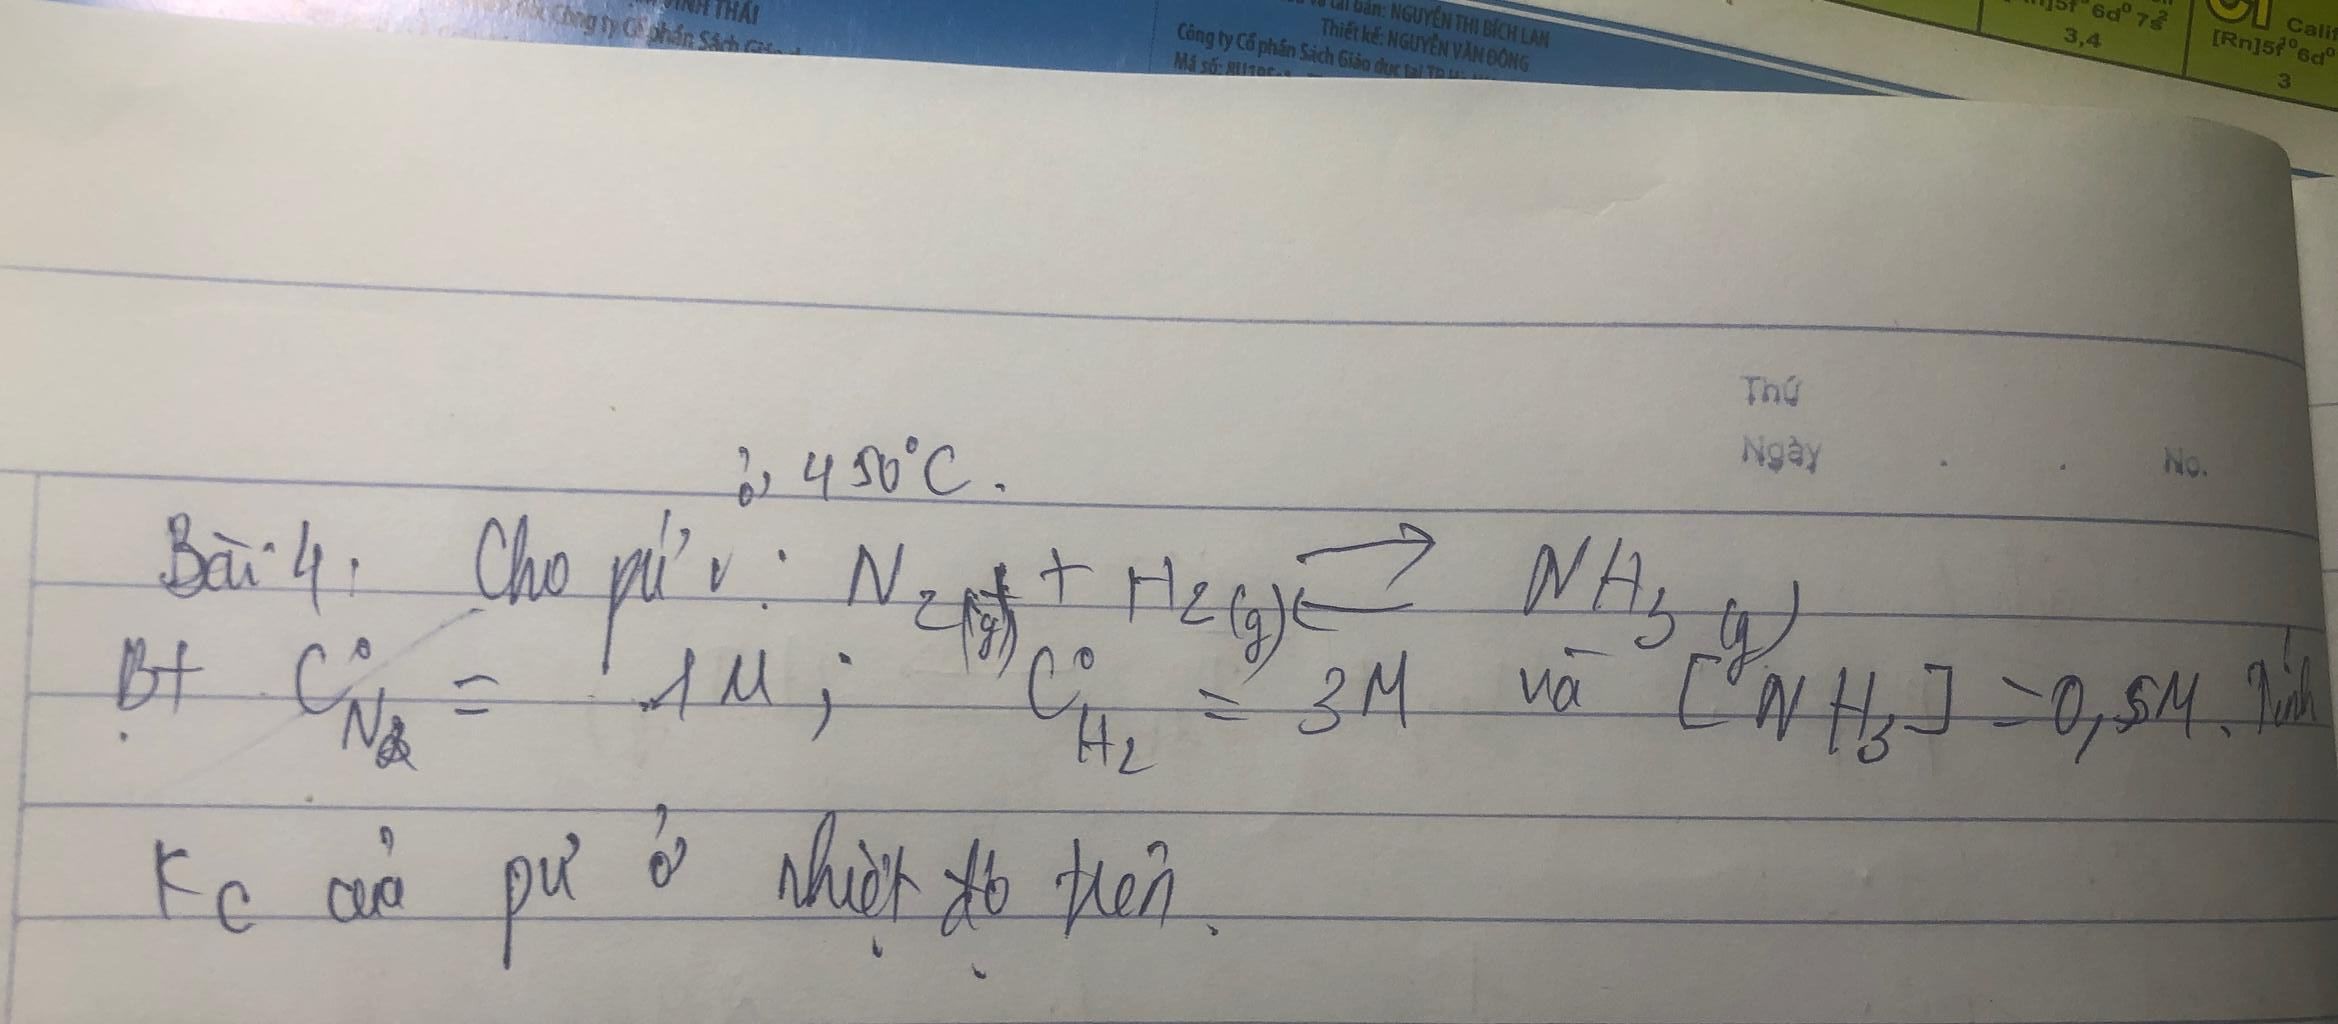 VINH THÁI
Công ty Cổ phần Sách Giáo
tái bản: NGUYỄN THỊ BÍCH LAN
Thiết kế: NGUYỄN VĂN ĐÔNG
Công ty Cổ phần Sách Giáo dục tại TP.
Mã số:
6d⁰ 7s²
3,4
Calif
[Rn]5f¹⁰6d⁰
3
Thứ
Ngày . . No.
ở 450°C.
Bài 4: Cho pứ v: N₂(g) + H₂(g) ⇄ NH₃(g)
Bt C°N₂ = 1M; C°H₂ = 3M và [NH₃] = 0,5M. Tính
Kc của pư ở nhiệt độ trên.